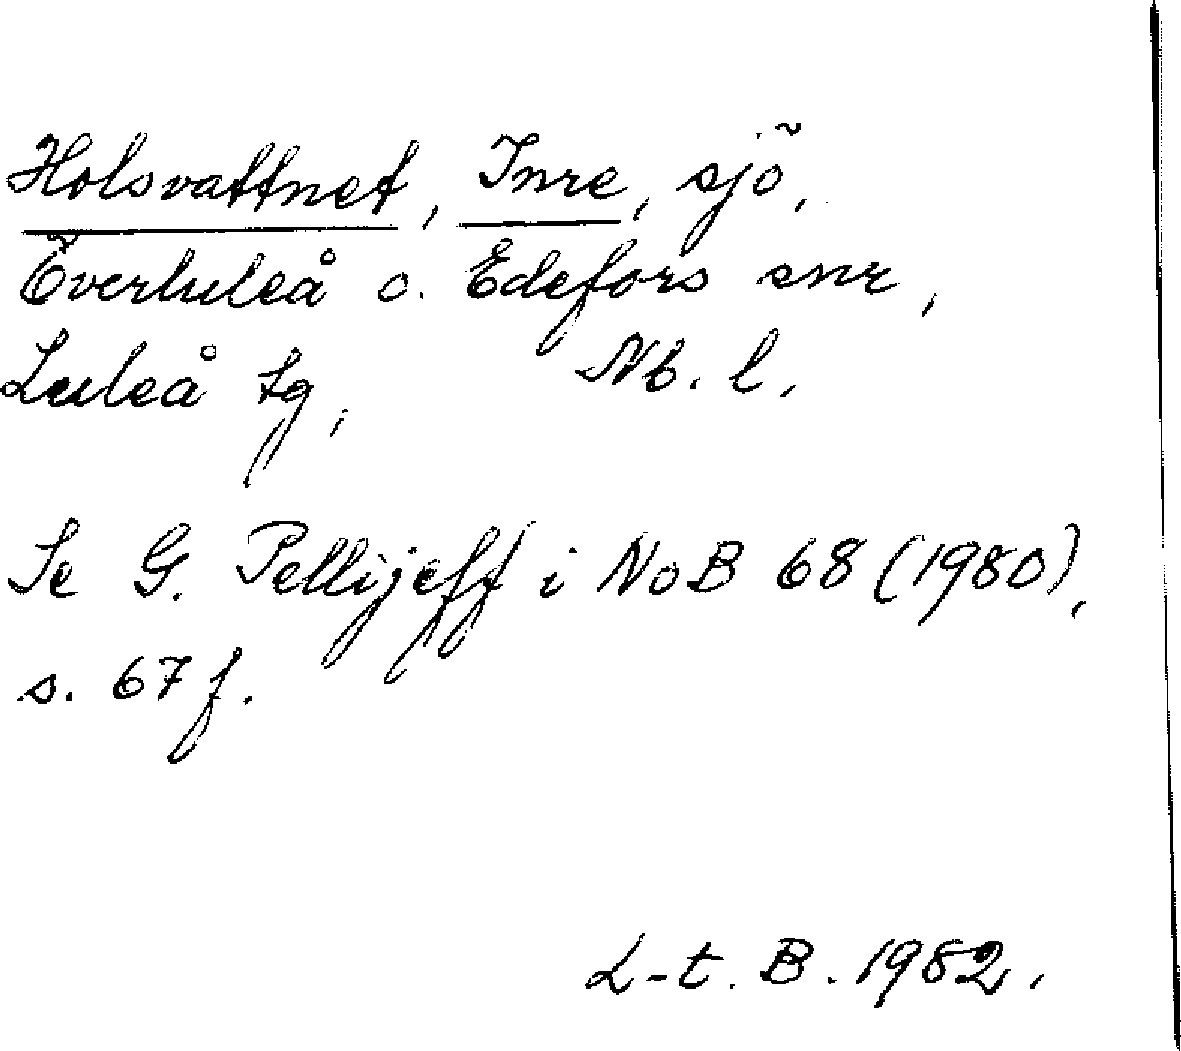 Holsvattnet, Inre, sjö,
Överluleå o. Edefors snr,
Luleå tg, Nb. l.
Se G. Pellijeff i NoB 68 (1980),
s. 67 f.
L-t. B. 1982.